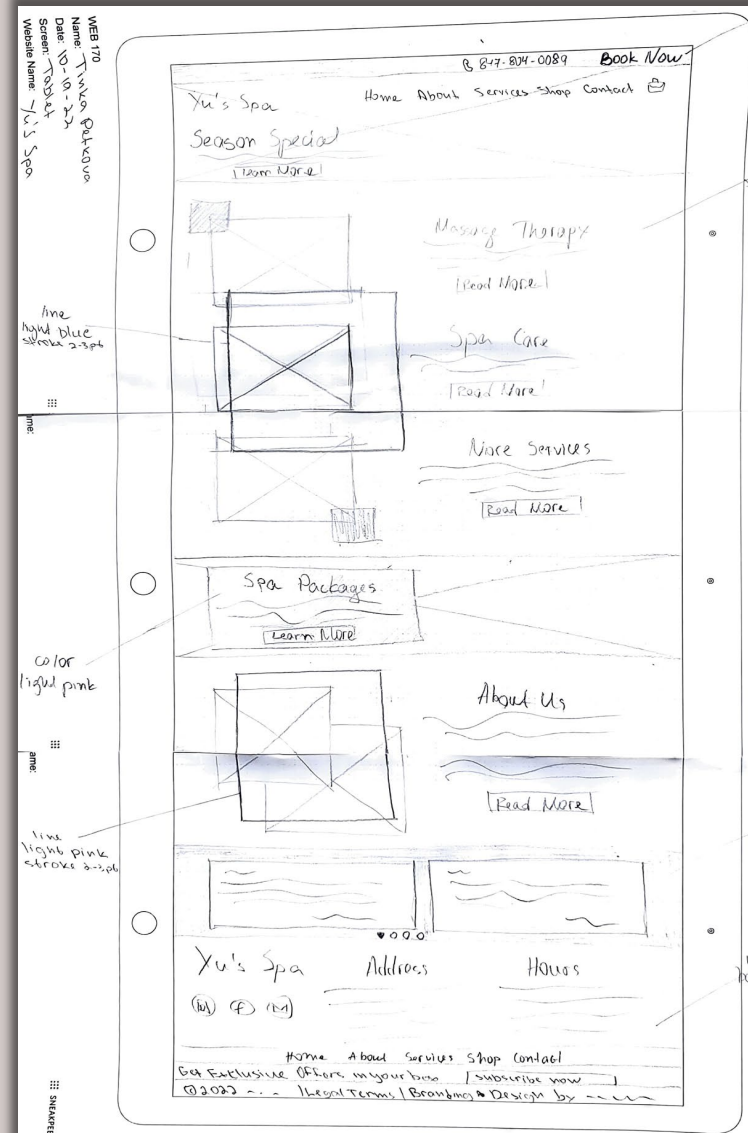 WEB 170
Name: Tinka Petkova
Date: 10-19-22
Screen: Tablet
Website Name: Yu's Spa
847-804-0089 Book Now
Yu's Spa Home About Services Shop Contact
Season Special
Learn More
Massage Therapy
Read More
line
light blue
stroke 2-3pt
Spa Care
Read More
ame:
More Services
Read More
Spa Packages
Learn More
color
light pink
About Us
ame:
Read More
line
light pink
stroke 2-3pt
Yu's Spa Address Hours
Home About Services Shop Contact
Get Exklusive Offers in your box subscribe now
©2022 -.- | Legal Terms | Branding & Design by
SNEAKPEE